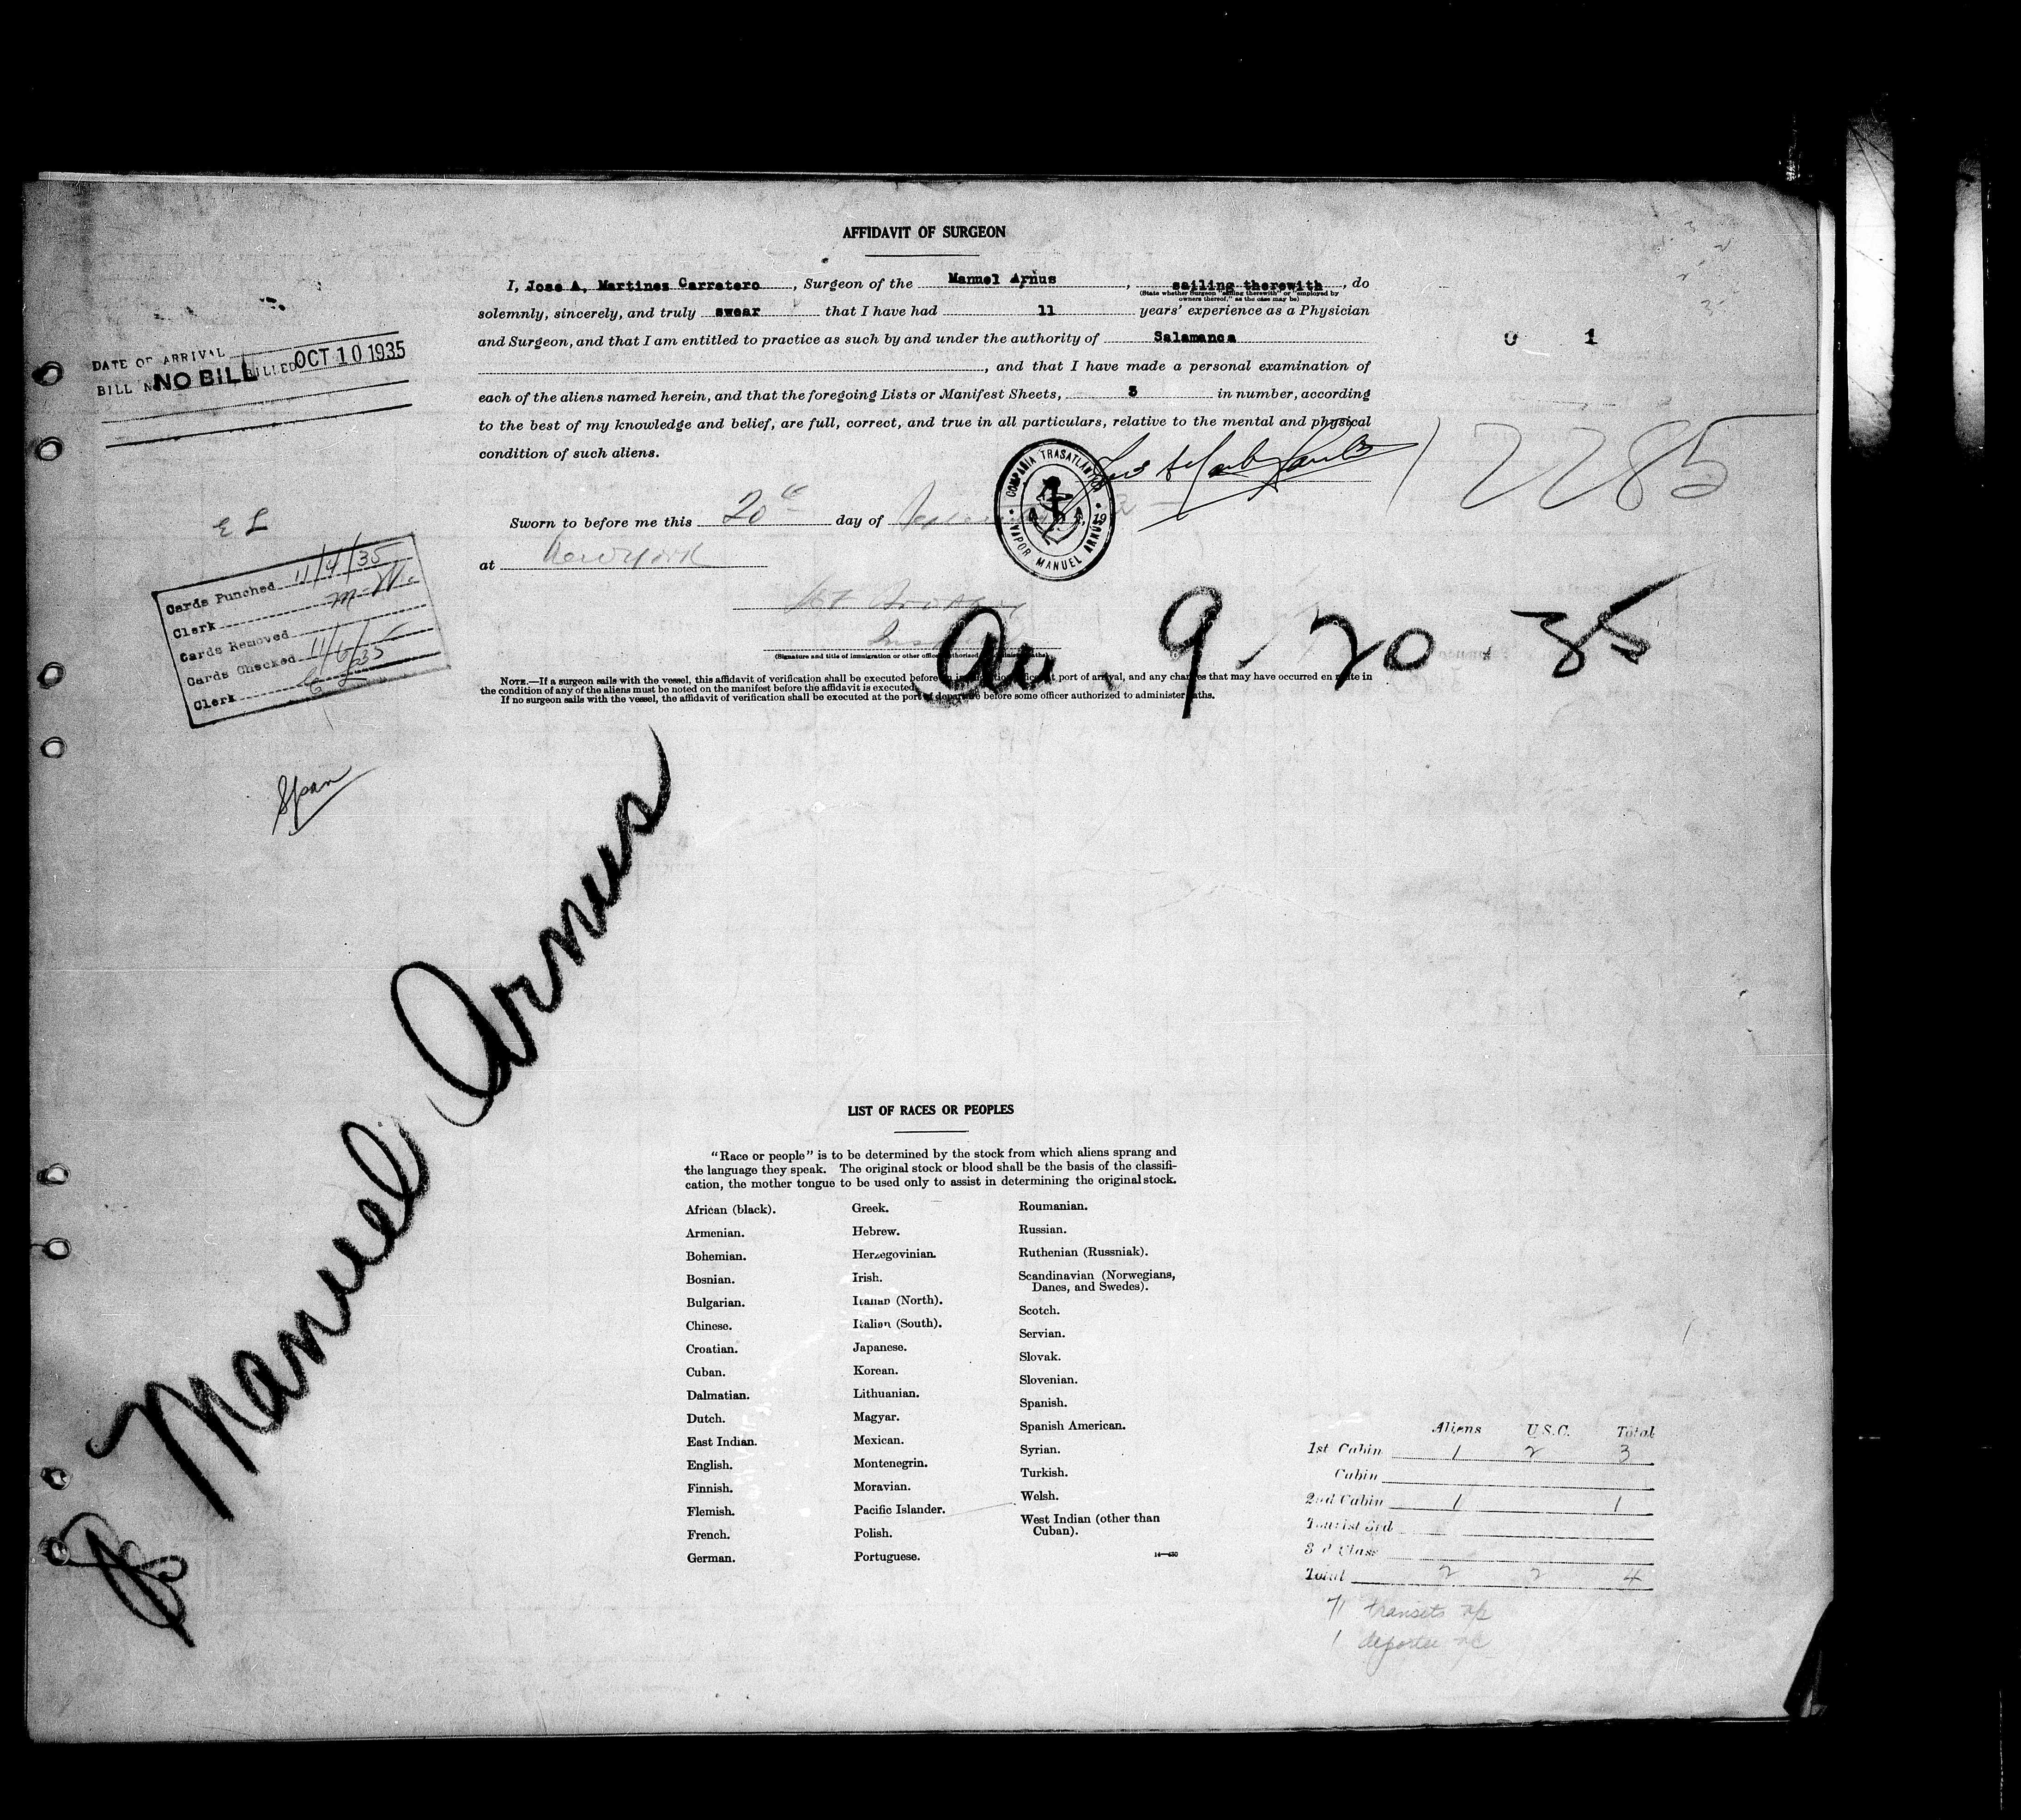 AFFIDAVIT OF SURGEON
I, Jose A. Martinez Carretero, Surgeon of the Manuel Arnus, sailing therewith, do
(State whether Surgeon "sailing therewith" or "employed by
owners thereof," as the case may be)
solemnly, sincerely, and truly swear that I have had 11 years' experience as a Physician
and Surgeon, and that I am entitled to practice as such by and under the authority of Salamanca
, and that I have made a personal examination of
each of the aliens named herein, and that the foregoing Lists or Manifest Sheets, 3 in number, according
to the best of my knowledge and belief, are full, correct, and true in all particulars, relative to the mental and physical
condition of such aliens.
0 1
2285
DATE OF ARRIVAL
BILL NO BILL BILLED OCT 10 1935
COMPAÑIA TRASATLANTICA
VAPOR MANUEL ARNUS
Sworn to before me this 20 day of September, 19
at New York
E L
Cards Punched 11/4/35
Clerk M.W.
Cards Removed
Cards Checked 11/6/35
Clerk E L
Arr. 9 20 35
(Signature and title of immigration or other officer authorized to administer oaths)
NOTE.—If a surgeon sails with the vessel, this affidavit of verification shall be executed before an immigration officer at port of arrival, and any changes that may have occurred en route in
the condition of any of the aliens must be noted on the manifest before the affidavit is executed.
If no surgeon sails with the vessel, the affidavit of verification shall be executed at the port of departure before some officer authorized to administer oaths.
Span
Manuel Arnus
LIST OF RACES OR PEOPLES
"Race or people" is to be determined by the stock from which aliens sprang and
the language they speak. The original stock or blood shall be the basis of the classifi-
cation, the mother tongue to be used only to assist in determining the original stock.
African (black).
Armenian.
Bohemian.
Bosnian.
Bulgarian.
Chinese.
Croatian.
Cuban.
Dalmatian.
Dutch.
East Indian.
English.
Finnish.
Flemish.
French.
German.
Greek.
Hebrew.
Herzegovinian.
Irish.
Italian (North).
Italian (South).
Japanese.
Korean.
Lithuanian.
Magyar.
Mexican.
Montenegrin.
Moravian.
Pacific Islander.
Polish.
Portuguese.
Roumanian.
Russian.
Ruthenian (Russniak).
Scandinavian (Norwegians,
Danes, and Swedes).
Scotch.
Servian.
Slovak.
Slovenian.
Spanish.
Spanish American.
Syrian.
Turkish.
Welsh.
West Indian (other than
Cuban).
14—430
Aliens U.S.C. Total
1st Cabin 1 2 3
Cabin
2nd Cabin 1 1
Tourist 3rd
3rd Class
Total 2 2 4
71 transits
1 deportee